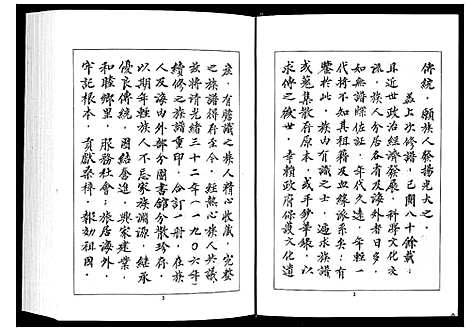 傳統，願族人發揚光大之。
蓋上次修譜，已閱八十餘載；
且近世政治經濟發展，科學文化交
流，族人分居各省及海外者日多，
如無譜牒佐証，年代久遠，年青一
代將不知其祖籍及血緣派系矣；有
鑒於此，族內有識之士，遍求族譜
或蒐集散府原本，或手鈔華錄，以
求傳之於世，幸賴政府保護文化遺
產，有膽識之族人精心收藏，完整
之族譜得存至今，經族人共議，
茲將清光緒三十二年（一九〇六年）
續修之族譜重印，合訂一冊，在族
人及海內外部分圖書館分散珍存，
以期年輕族人不忘家族淵源，繼承
優良傳統，團結奮進，興家建業，
和睦鄉里，服務社會；旅居海外，
牢記根本，貢獻桑梓，報効祖國。
2
3